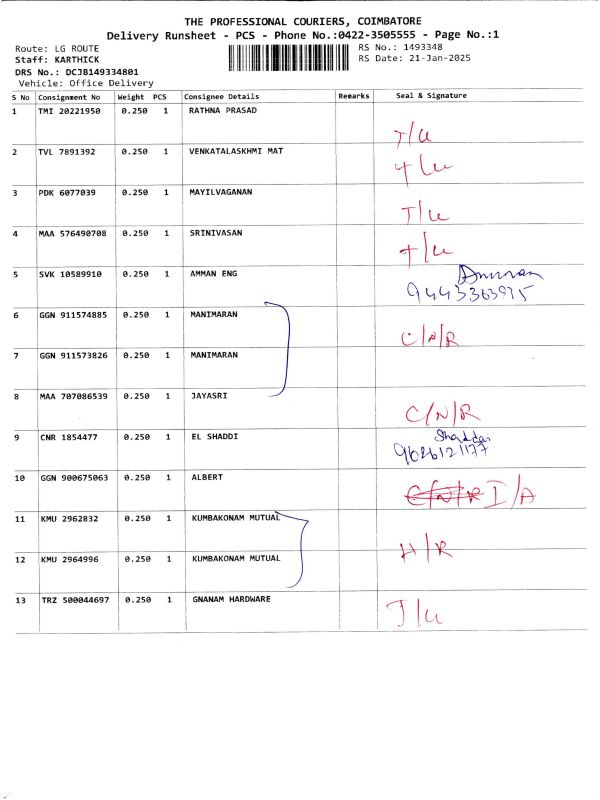 THE PROFESSIONAL COURIERS, COIMBATORE
Delivery Runsheet - PCS - Phone No.:0422-3505555 - Page No.:1
Route: LG ROUTE
RS No.: 1493348
Staff: KARTHICK
RS Date: 21-Jan-2025
DRS No.: DCJB149334801
Vehicle: Office Delivery
S No Consignment No Weight PCS Consignee Details Remarks Seal & Signature
1 TMI 20221950 0.250 1 RATHNA PRASAD
T/u
2 TVL 7891392 0.250 1 VENKATALASKHMI MAT
T/u
3 PDK 6077039 0.250 1 MAYILVAGANAN
T/u
4 MAA 576490708 0.250 1 SRINIVASAN
T/u
5 SVK 10589910 0.250 1 AMMAN ENG
6 GGN 911574885 0.250 1 MANIMARAN
C/N/R
7 GGN 911573826 0.250 1 MANIMARAN
8 MAA 707086539 0.250 1 JAYASRI
C/N/R
9 CNR 1854477 0.250 1 EL SHADDI
10 GGN 900675063 0.250 1 ALBERT
C/N/R I/A
11 KMU 2962832 0.250 1 KUMBAKONAM MUTUAL
H/R
12 KMU 2964996 0.250 1 KUMBAKONAM MUTUAL
13 TRZ 500044697 0.250 1 GNANAM HARDWARE
T/u